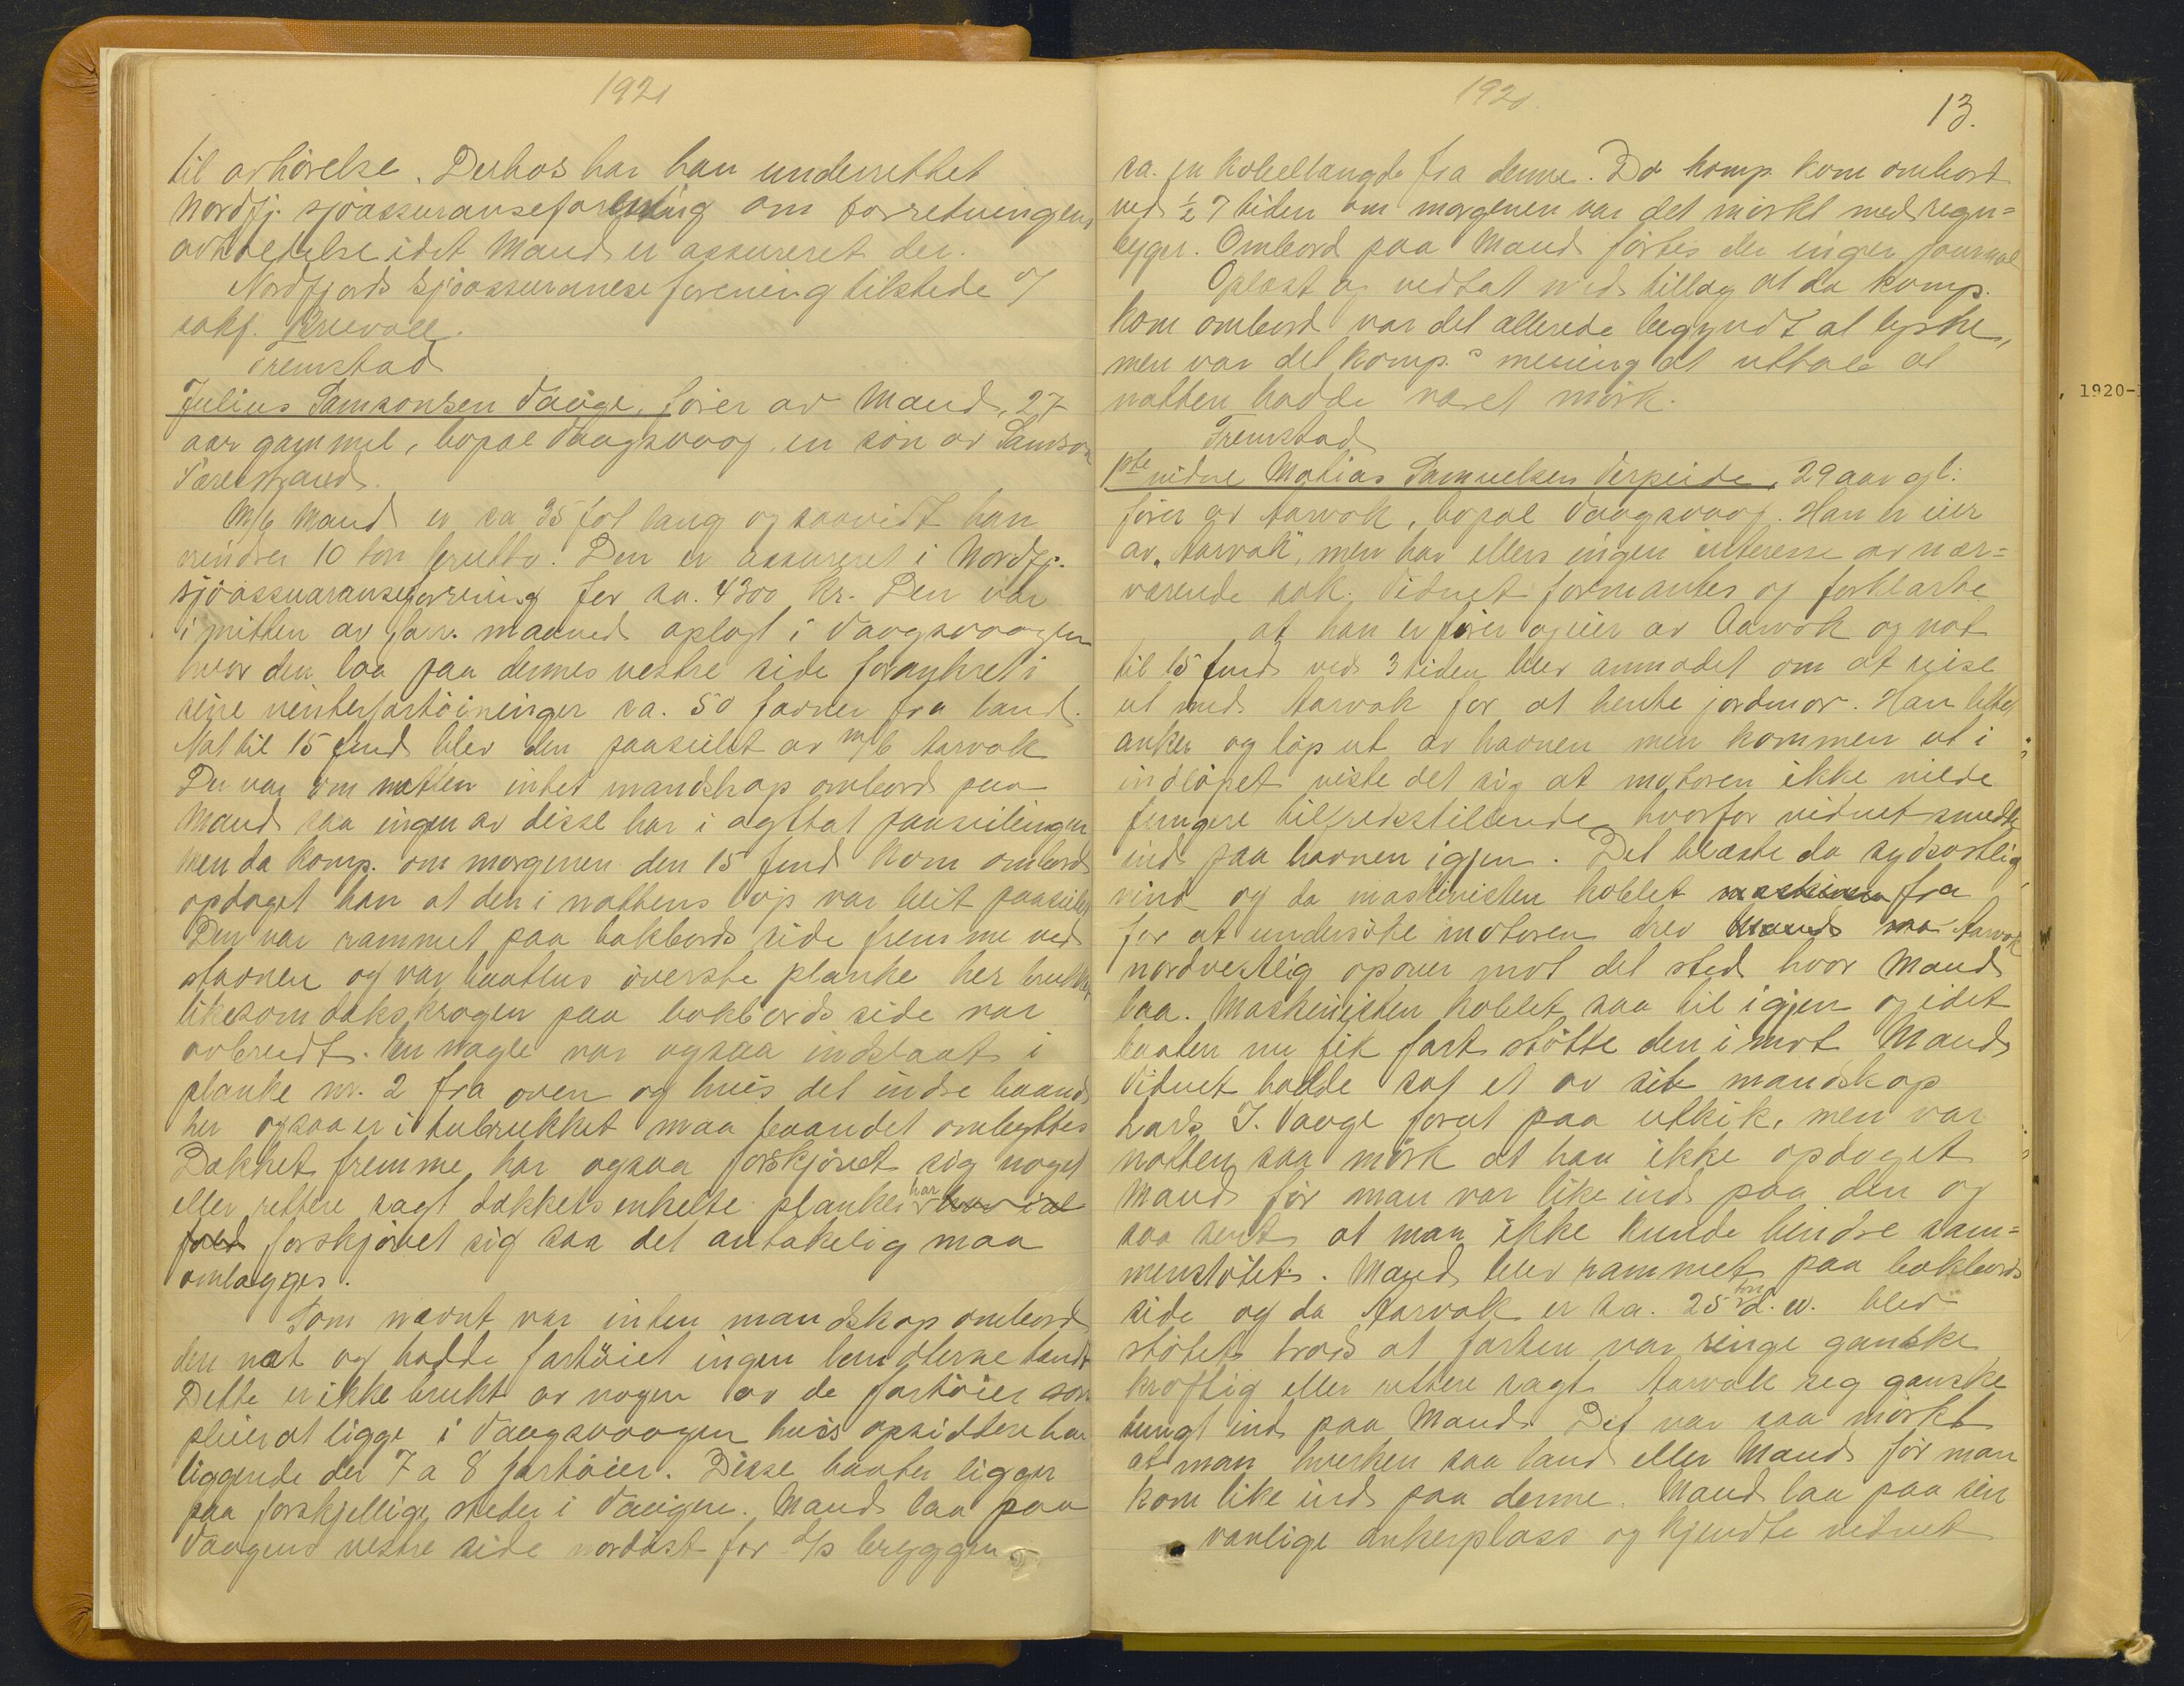 1921
til avhörelse. Derhos har han underrettet
Nordfj. sjöassuranseforening om forretningens
avholdelse idet Maud er assureret der.
Nordfjords Sjöassuranseforening tilstede v/
sakf.
Fremstod
Julius Samsonsen Vaage, förer av Maud, 27
aar gammel, bopæl Vaagsvaag, en sön av Samson
M/b Maud er ca 35 fot lang og saavidt han
erindrer 10 ton brutto. Den er assureret i Nordfj.
sjöassuaranseforening for ca. 4300 kr. Den var
i mitten av jan. maaned oplagt i Vaagsvaagen
hvor den laa paa dennes vestre side forankret i
sine vinterfortöininger ca. 50 favner fra land.
Nat til 15 feud blev den paaseilet av m/b Aarvak
Der var om natten intet mandskap ombord paa
Maud saa ingen av disse har iagttat paaseilingen
men da komp. om morgenen den 15 feud kom ombord
opdaget han at den i nattens löp var blit paaseilet
Den var rammet paa bakbords side fremme ved
stavnen og var baatens överste planke her brukket
likesom dækskragen paa bakbords side var
avbrudt. En nagle var ogsaa indslaat i
planke nr. 2 fra oven og hvis det indre baand
her ogsaa er itubrukket maa baandet ombyttes
Dækket fremme har ogsaa forskjövet sig noget
eller rettere sagt dækkets enkelte planker har
forskjövet sig saa det antakelig maa
omlægges.
Som nævnt var inten mandskap ombord
den nat og hadde fartöiet ingen lanterne tændt
Dette er ikke brukt av nogen av de fartöier som
pleier at ligge i Vaagsvaagen hvis opsiddere har
liggende der 7 a 8 fartöier. Disse baater ligger
paa forskjellige steder i Vaagen. Maud laa paa
Vaagens vestre side nordöst for d/s bryggen
1921.
13.
ca. en kabellængde fra denne. Da komp. kom ombord
ved ½ 7 tiden om morgenen var det mörkt med regn=
byger. Ombord paa Maud förtes der ingen journal
Oplæst og vedtat med tillæg at da komp.
kom ombord var det allerede begyndt at lysne,
men var det komp.s mening at uttale at
natten hadde været mörk.
Fremstod
1ste vidne Matias Samuelsen Verpeide, 29 aar gl.
förer av Aarvak, bopæl Vaagsvaag. Han er eier
av „Aarvak", men har ellers ingen interesse av nær=
værende sak. Vidnet formantes og forklarte
at han er förer og eier av Aarvak og nat
til 15 feud ved 3 tiden blev anmodet om at reise
ut med Aarvak for at hente jordmor. Han lettet
anker og löp ut av havnen men kommen ut i
indlöpet viste det sig at motoren ikke vilde
fungere tilfredsstillende hvorfor vidnet snudde
ind paa havnen igjen. Det blæste da sydöstlig
vind og da maskinisten koblet maskinen fra
for at undersöke motoren drev Aarvak
nordvestlig opover mot det sted hvor Maud
laa. Maskinisten koblet saa til igjen og idet
baaten nu fik fart stötte den imot Maud
Vidnet hadde sat et av sit mandskap
Lars J. Vaage forut paa utkik, men var
natten saa mörk at han ikke opdaget
Maud för man var like ind paa den og
saa sent at man ikke kunde hindre sam=
menstötet. Maud blev rammet paa bakbords
side og da Aarvak er ca. 25 ton d. w. blev
stötet trods at farten var ringe ganske
kraftig eller rettere sagt Aarvak seg ganske
tungt ind paa Maud. Det var saa mörkt
at man hverken saa land eller Maud för man
kom like ind paa denne. Maud laa paa sin
vanlige ankerplass og kjendte vidnet
, 1920-